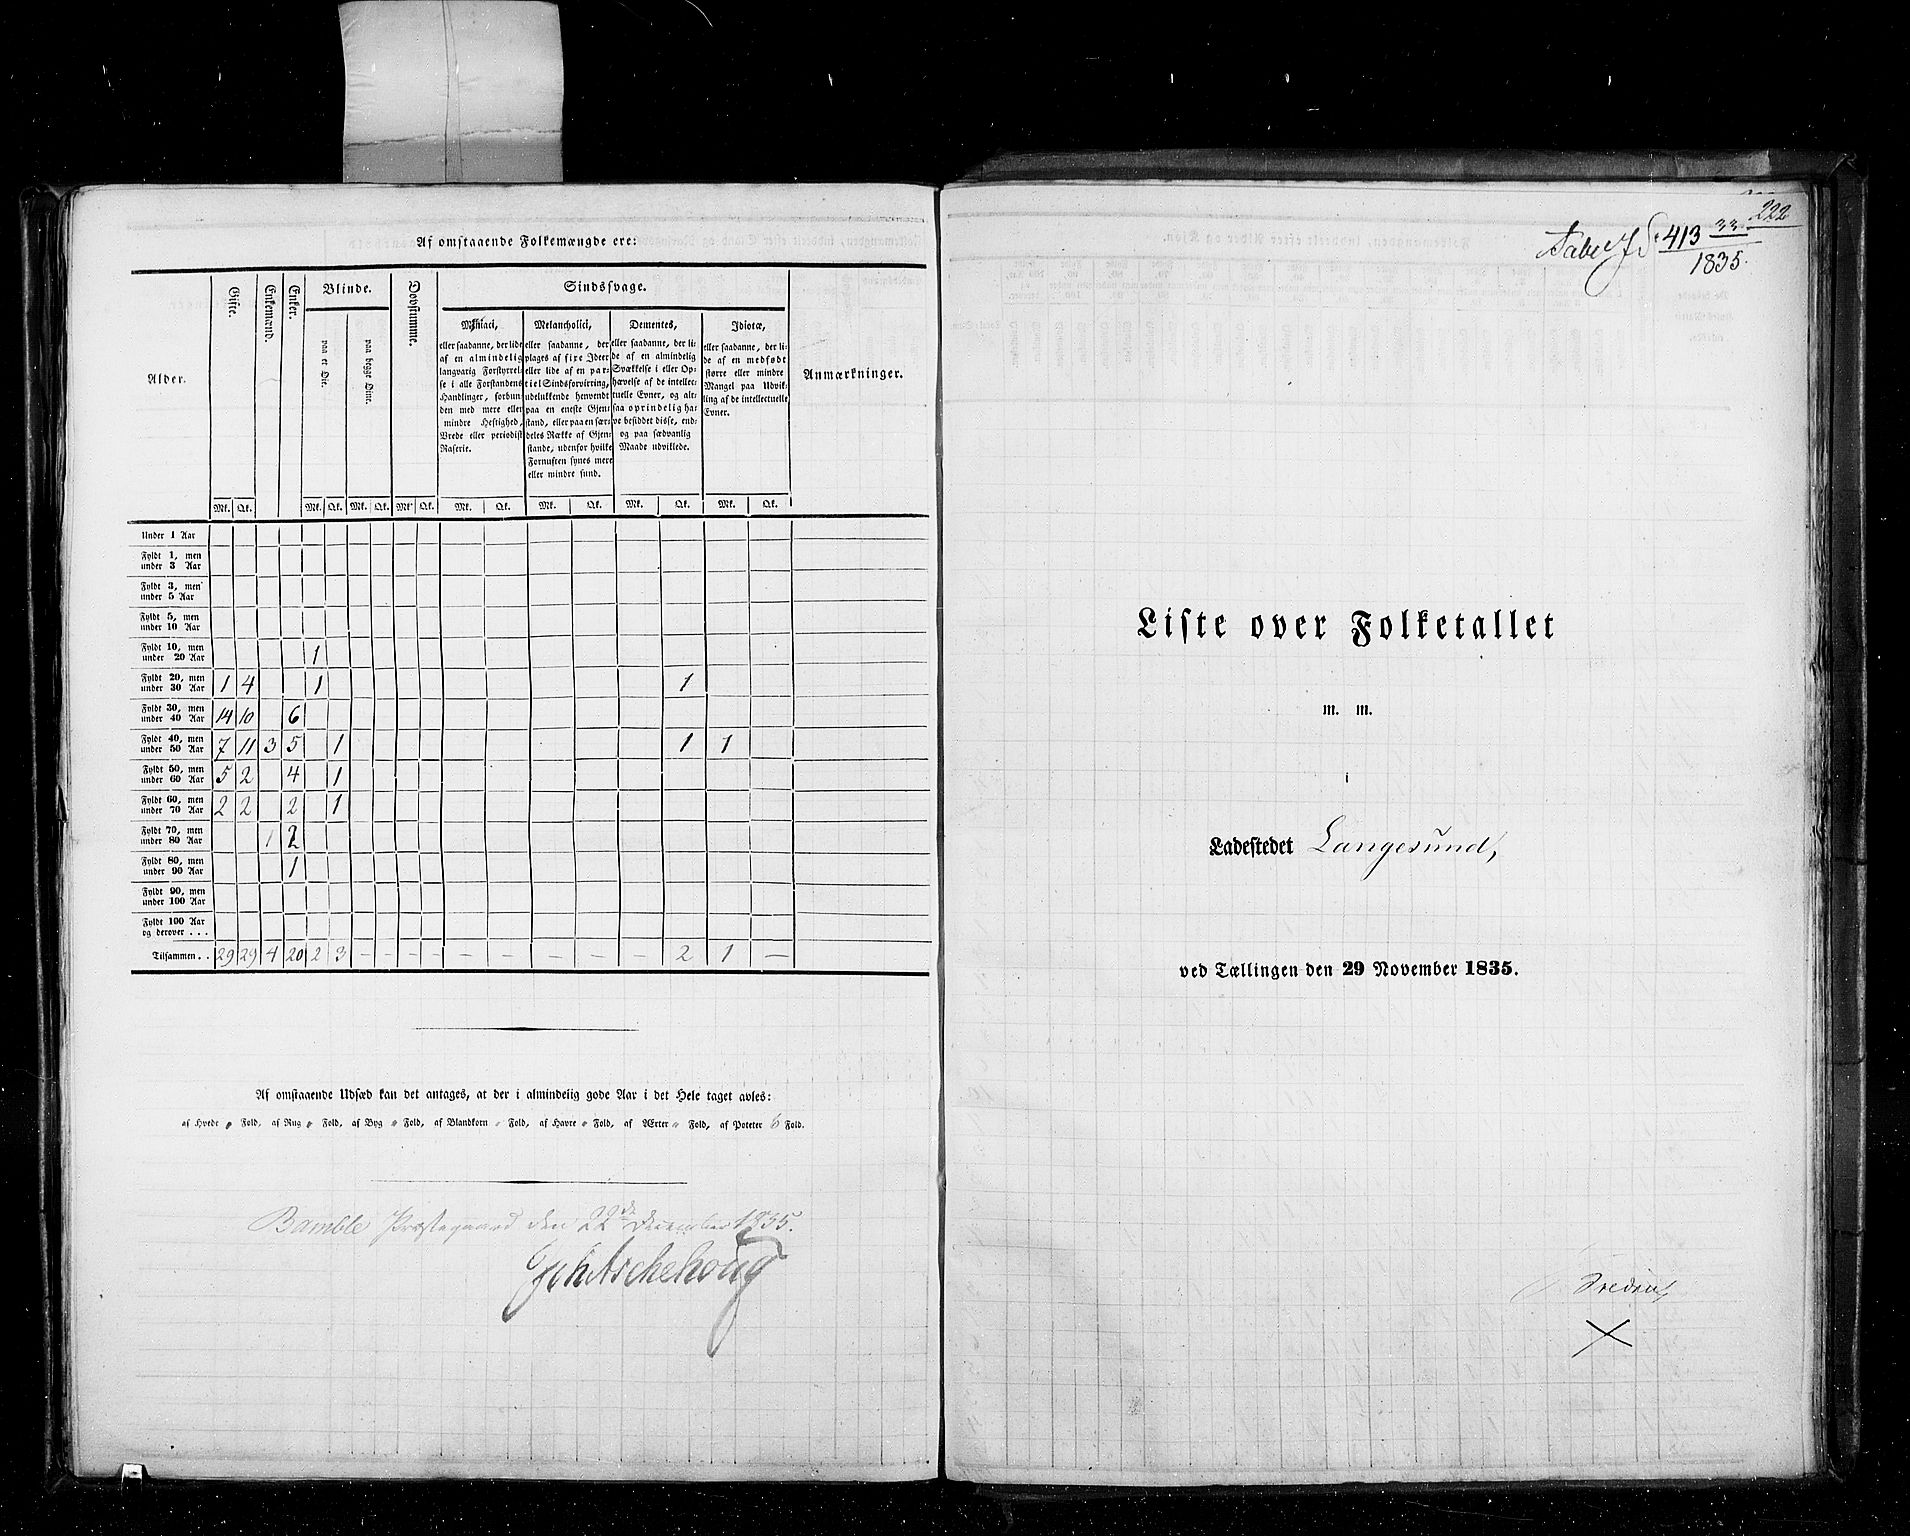 Af omstaaende Folkemængde ere:
Alder.
Gifte.
Enkemænd.
Enker.
Blinde.
paa et Øie.
paa begge Øine.
Døvstumme.
Sindssvage.
Maniaci,
eller saadanne, der lide
af en almindelig
langvarig Forstyrrel-
se i alle Forstandens
Handlinger, forbun-
den med mere eller
mindre Heftighed,
Vrede eller periodisk
Raserie.
Melancholici,
eller saadanne, der
plages af fixe Ideer
eller lide af en par-
tiel Sindsforvirring,
udelukkende henvendt
paa en eneste Gjen-
stand, eller paa en sær-
deles Række af Gjen-
stande, udenfor hvilke
Fornuften synes mere
eller mindre sund.
Dementes,
eller saadanne, der li-
de af en almindelig
Svækkelse i eller Op-
hævelse af de intellec-
tuelle Evner, og alt-
saa oprindelig ha-
ve besiddet disse, end-
og paa sædvanlig
Maade udviklede.
Idiotæ,
eller saadanne, der li-
de af en medfødt
større eller mindre
Mangel paa Udvik-
ling af de intellectuelle
Evner.
Anmærkninger.
Mk. Qk. Mk. Qk. Mk. Qk. Mk. Qk. Mk. Qk. Mk. Qk. Mk. Qk. Mk. Qk.
Under 1 Aar
Fyldt 1, men
under 3 Aar
Fyldt 3, men
under 5 Aar
Fyldt 5, men
under 10 Aar
Fyldt 10, men
under 20 Aar 1
Fyldt 20, men
under 30 Aar 1 4 1 1
Fyldt 30, men
under 40 Aar 14 10 6
Fyldt 40, men
under 50 Aar 7 11 3 5 1 1 1
Fyldt 50, men
under 60 Aar 5 2 4 1
Fyldt 60, men
under 70 Aar 2 2 2 1
Fyldt 70, men
under 80 Aar 1 2
Fyldt 80, men
under 90 Aar 1
Fyldt 90, men
under 100 Aar
Fyldt 100 Aar
og derover . . .
Tilsammen . . 29 29 4 20 2 3 – – – – – – – – – 2 1 –
Af omstaaende Udsæd kan det antages, at der i almindelig gode Aar i det Hele taget avles:
af Hvede " Fold, af Rug " Fold, af Byg " Fold, af Blandkorn " Fold, af Havre " Fold, af Ærter " Fold, af Poteter 6 Fold.
Bamble Præstegaard den 22de December 1835.
Joh Aschehoug
222
413 33
1835.
Liste over Folketallet
m. m.
i
Ladestedet Langesund,
ved Tællingen den 29 November 1835.